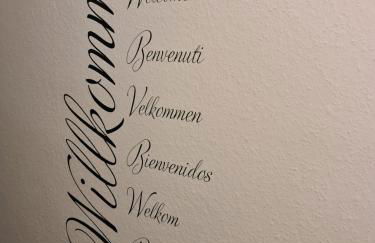 Willkomm
Benvenuti
Velkommen
Bienvenidos
Welkom